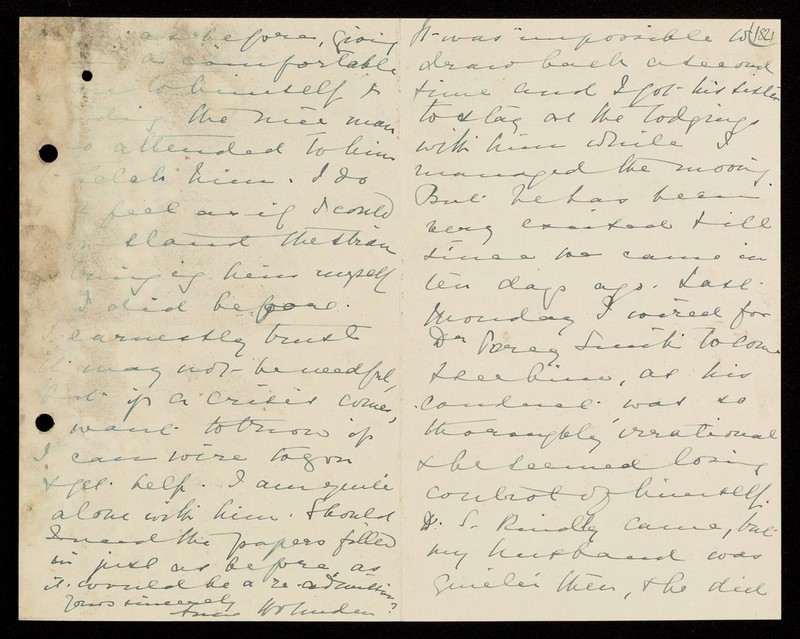 as before, giving
a comfortable
to himself &
the nice man
attended to him
fetch him. I do
feel as if I could
stand the strain
bringing him myself
I did before.
earnestly trust
it may not be needful,
but if a crisis comes,
want to know if
I can wire to you
& get help. I am quite
alone with him. Should
I need the papers filled
in just as before, as
it would be a re-admission?
Yours sincerely
It was impossible to 182
draw back a second
time and I got his sister
to stay at the lodgings
with him while I
managed the moving.
But he has been
very excited & ill
since we came in
ten days ago. Last
Monday I wired for
Dr Percy Smith to come
& see him, as his
conduct was so
thoroughly irrational
& he seemed losing
control of himself.
Dr. S. kindly came, but
my husband was
quieter then, & he did